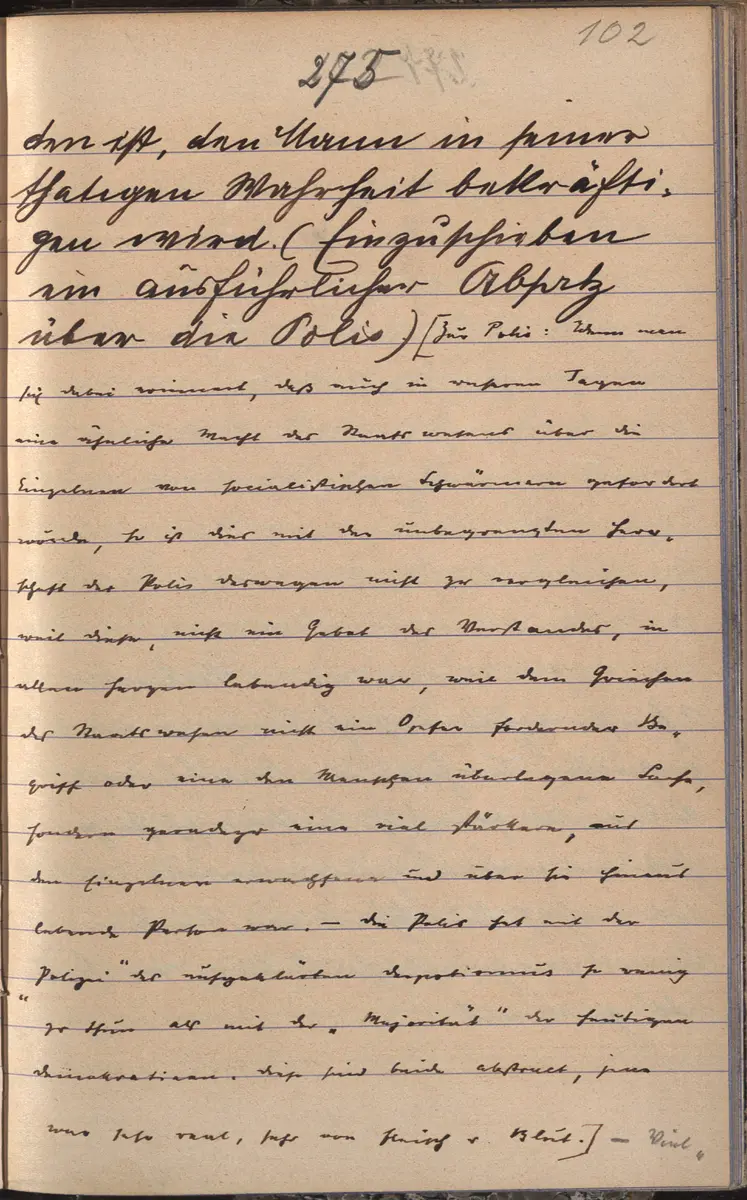 102
275
den ist, den Mann in seiner
thatigen Wahrheit bekräfti-
gen wird. (Einzuschieben
ein ausführlicher Absatz
über die Polis) [Zur Polis: Wenn man
sich dabei erinnert, daß auch in unseren Tagen
eine ähnliche Macht des Staatswesens über die
Einzelnen von socialistischen Schwärmern gefordert
würde, so ist dies mit der unbegrenzten Herr-
schaft der Polis deswegen nicht zu vergleichen,
weil diese, nicht ein Gebot des Verstandes, in
allen Herzen lebendig war, weil dem Griechen
das Staatswesen nicht ein Opfer fordernder Be-
griff oder eine den Menschen überlegene Sache,
sondern geradezu eine viel stärkere, aus
den Einzelnen erwachsene und über sie hinaus
lebende Person war. — die Polis hat mit der
„Polizei" des aufgeklärten despotismus so wenig
zu thun als mit der „Majorität" der heutigen
demokratieen. diese sind beide abstract, jene
war sehr real, sehr von Fleisch u. Blut.] — Viel-